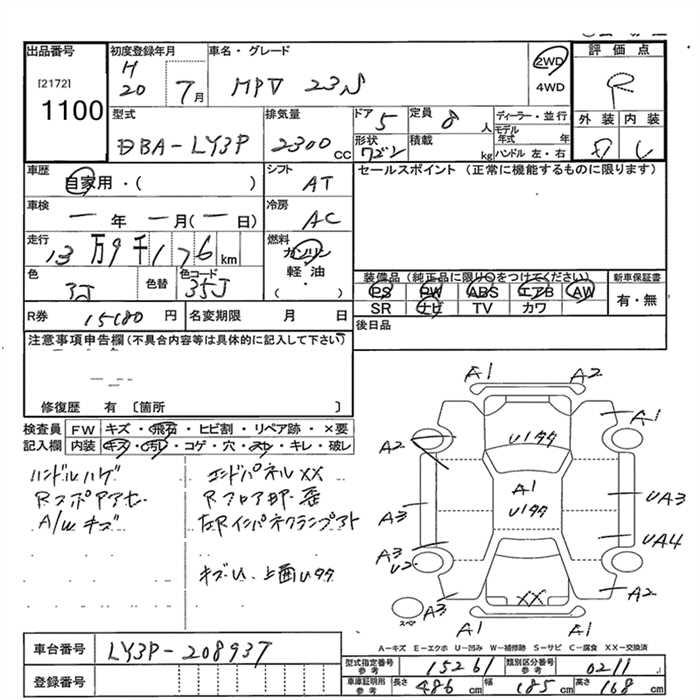 出品番号 初度登録年月 車名・グレード 評価点
[2172] 1100 H20 7月 MPV 23S 2WD 4WD R
型式 排気量 ドア 定員 ディーラー・並行 外装 内装
DBA-LY3P 2300cc 5 8人 モデル年式 年
形状 積載 ハンドル 左・右
ワゴン kg
車歴 シフト セールスポイント (正常に機能するものに限ります)
自家用・( ) AT
車検 冷房
一年 一月(一日) AC
走行 燃料
13万9千176km ガソリン
軽油
( ・ )
色 色替 色コード 装備品 (純正品に限り○をつけてください) 新車保証書
35J PS PW ABS エアB AW 有・無
SR ナビ TV カワ
R券 15180円 名変期限 月 日 後日品
注意事項申告欄(不具合内容等は具体的に記入して下さい)
修復歴 有 〔箇所 〕
検査員 FW キズ・飛石・ヒビ割・リペア跡・×要
記入欄 内装 キズ・汚れ・コゲ・穴・スレ・キレ・破レ
ハンドルハゲ エンドパネルXX
A/Wキズ
キズU、上面Uタタ
A1 A2
A1
A2 Uタタ
A1
Uタタ
A3 UA3
UA4
A3
U2
XX A2
スペア A3
A1 A1
A-キズ E-エクボ U-凹み W-補修跡 S-サビ C-腐食 XX-交換済
車台番号 LY3P-208937
登録番号
型式指定番号 参考 15261 類別区分番号 参考 0211
車庫証明用 参考 長さ 486cm 幅 185cm 高さ 168cm